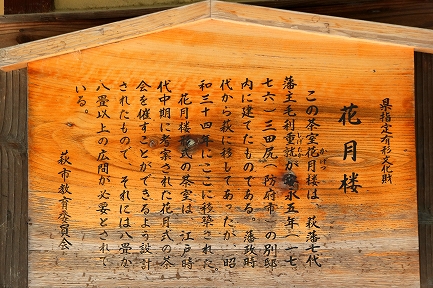 県指定有形文化財
花月楼
かげつ
この茶室花月楼は、萩藩七代
しげたか
藩主毛利重就が安永五年（一七
七六）三田尻（防府市）の別邸
内に建てたものである。藩政時
代から萩に移してあったが、昭
和三十四年にここに移築された。
花月楼形式の茶室は、江戸時
代中期に考案された花月式の茶
会を催すことができるよう設計
されたもので、それには八畳か
八畳以上の広間が必要とされて
いる。
萩市教育委員会